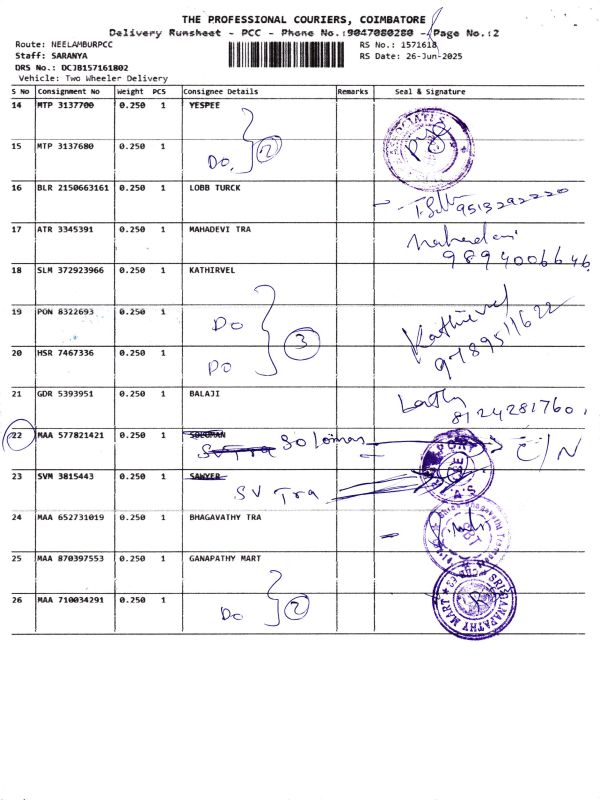 THE PROFESSIONAL COURIERS, COIMBATORE
Delivery Runsheet - PCC - Phone No.:9047080280 - Page No.:2
Route: NEELAMBURPCC
RS No.: 1571618
Staff: SARANYA
RS Date: 26-Jun-2025
DRS No.: DCJB157161802
Vehicle: Two Wheeler Delivery
S No Consignment No Weight PCS Consignee Details Remarks Seal & Signature
14 MTP 3137700 0.250 1 YESPEE
15 MTP 3137680 0.250 1 Do. 2
16 BLR 2150663161 0.250 1 LOBB TURCK
9513292220
17 ATR 3345391 0.250 1 MAHADEVI TRA
9894006646
18 SLM 372923966 0.250 1 KATHIRVEL
19 PON 8322693 0.250 1 Do 3 Kathirvel
20 HSR 7467336 0.250 1 Do 9789511622
21 GDR 5393951 0.250 1 BALAJI
8124281760
22 MAA 577821421 0.250 1 SOLOMAN
SV Tra Soloman C/N
23 SVM 3815443 0.250 1 SAWYER
SV Tra
24 MAA 652731019 0.250 1 BHAGAVATHY TRA
25 MAA 870397553 0.250 1 GANAPATHY MART
26 MAA 710034291 0.250 1 Do 2
SRI GANAPATHY MART